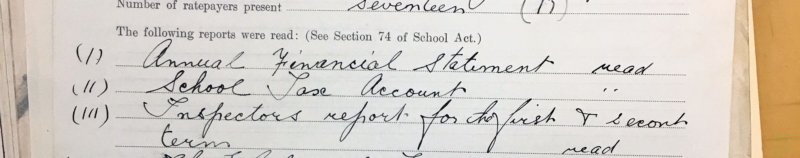 Number of ratepayers present seventeen (17)
The following reports were read: (See Section 74 of School Act.)
(I) Annual Financial Statement read
(II) School Tax Account "
(III) Inspectors report for the first & second
term read